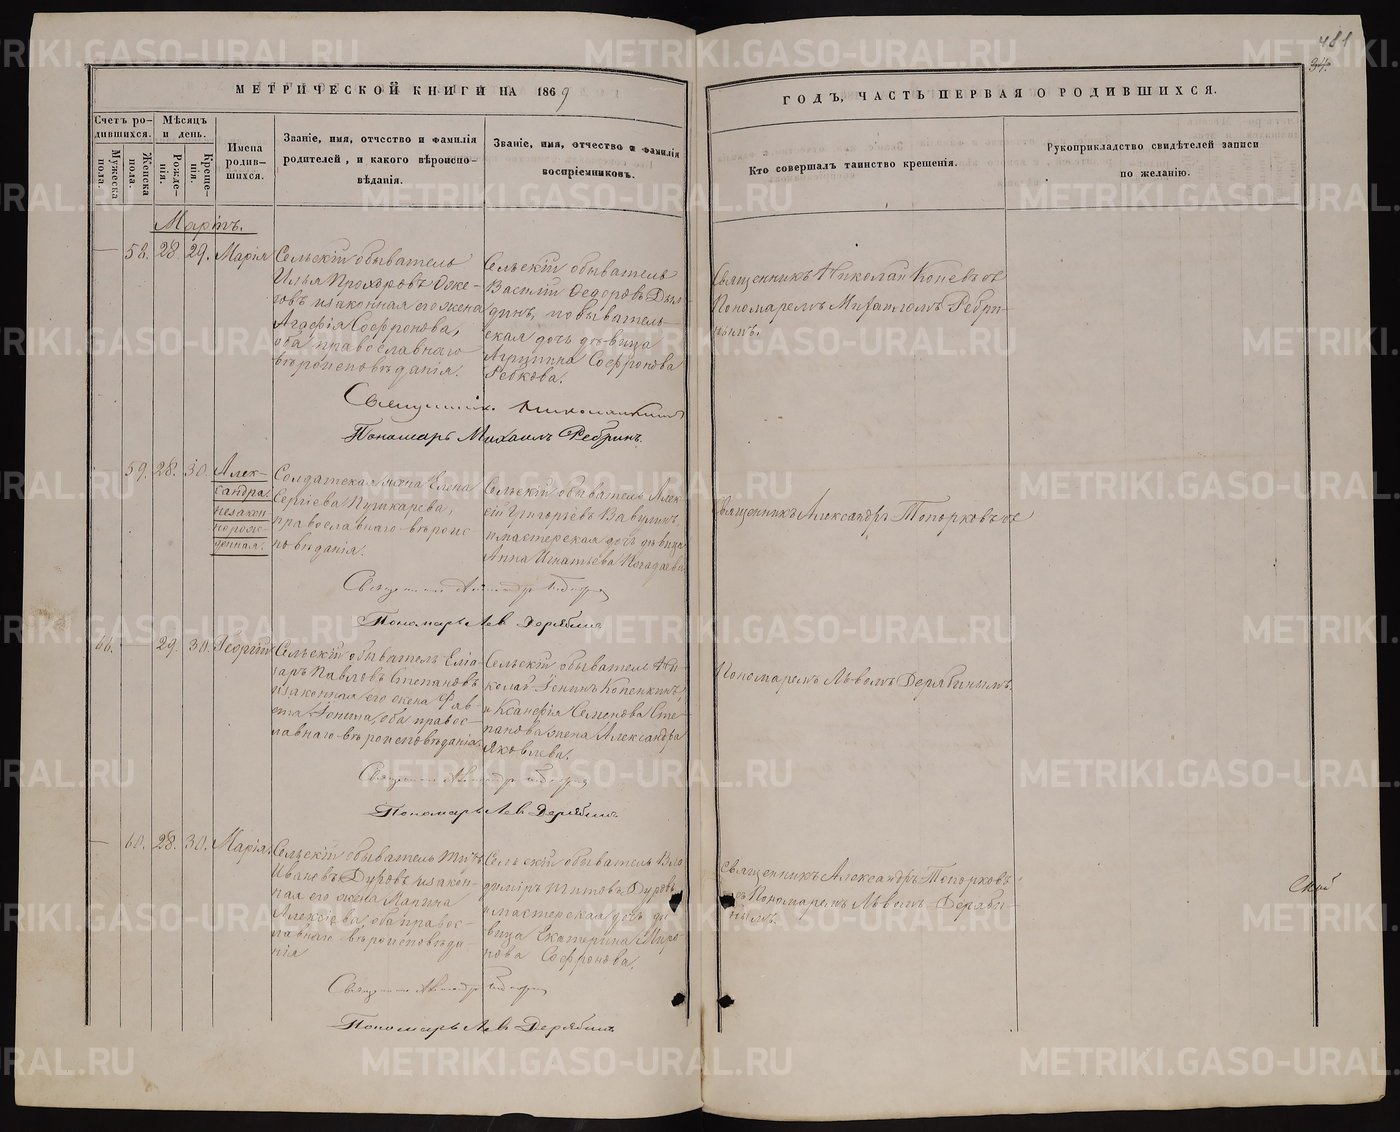 481
34.
МЕТРИЧЕСКОЙ КНИГИ НА 1869
ГОДЪ, ЧАСТЬ ПЕРВАЯ О РОДИВШИХСЯ.
Счетъ ро-
дившихся.
Мужеска
пола.
Женска
пола.
Мѣсяцъ
и день.
Рожде-
нія.
Креще-
нія.
Имена
родив-
шихся.
Званіе, имя, отчество и фамилія
родителей, и какого вѣроиспо-
вѣданія.
Званіе, имя, отчество и фамилія
воспріемниковъ.
Кто совершалъ таинство крещенія.
Рукоприкладство свидѣтелей записи
по желанію.
Мартъ.
58. 28. 29. Марія
Сельскій обыватель
Илья Прохоровъ
и законная его жена
Агафія Софронова,
оба православнаго
вѣроисповѣданія.
Сельскій обыватель
Василій Федоровъ
динъ, и обыватель-
ская дочь дѣвица
Агрипина Софронова
Рѣбкова.
Священникъ Николай Коневъ съ
Пономаремъ Михаиломъ Ребри-
нымъ.
Священникъ
Пономарь Михаилъ Ребринъ.
59. 28. 30. Алек-
сандра
незакон
норож-
денная.
Солдатская жена Елена
Сергіева Пушкарева,
православнаго вѣроис-
повѣданія.
Сельскій обыватель Алек-
сѣй Григорьевъ Вавулинъ
и мастерская дочь дѣвица
Анна Игнатьева
Священникъ Александръ Топорковъ съ
Священникъ Александръ
Пономарь Левъ Дерябинъ
46. 29. 30. Георгій
Сельскій обыватель
Павловъ Степановъ
и законная его жена
Іонина, оба правос-
лавнаго вѣроисповѣданія.
Сельскій обыватель Ни-
колай Іонинъ Копенкинъ,
и Ксанфія Семенова Сте-
панова жена Александра
Яковлева.
Пономаремъ Львомъ Дерябинымъ.
Священникъ Александръ
Пономарь Левъ Дерябинъ
60. 28. 30. Марія.
Сельскій обыватель Титъ
Ивановъ Дуровъ и закон-
ная его жена Марина
Алексіева, оба правос-
лавнаго вѣроисповѣда-
нія
Сельскій обыватель Вла
димиръ Титовъ Дуровъ
и мастерская дочь дѣ-
вица Екатерина Миро-
нова Софронова.
Священникъ Александръ Топорковъ
съ Пономаремъ Львомъ Деряби-
нымъ.
Священникъ Александръ
Пономарь Левъ Дерябинъ
METRIKI.GASO-URAL.RU